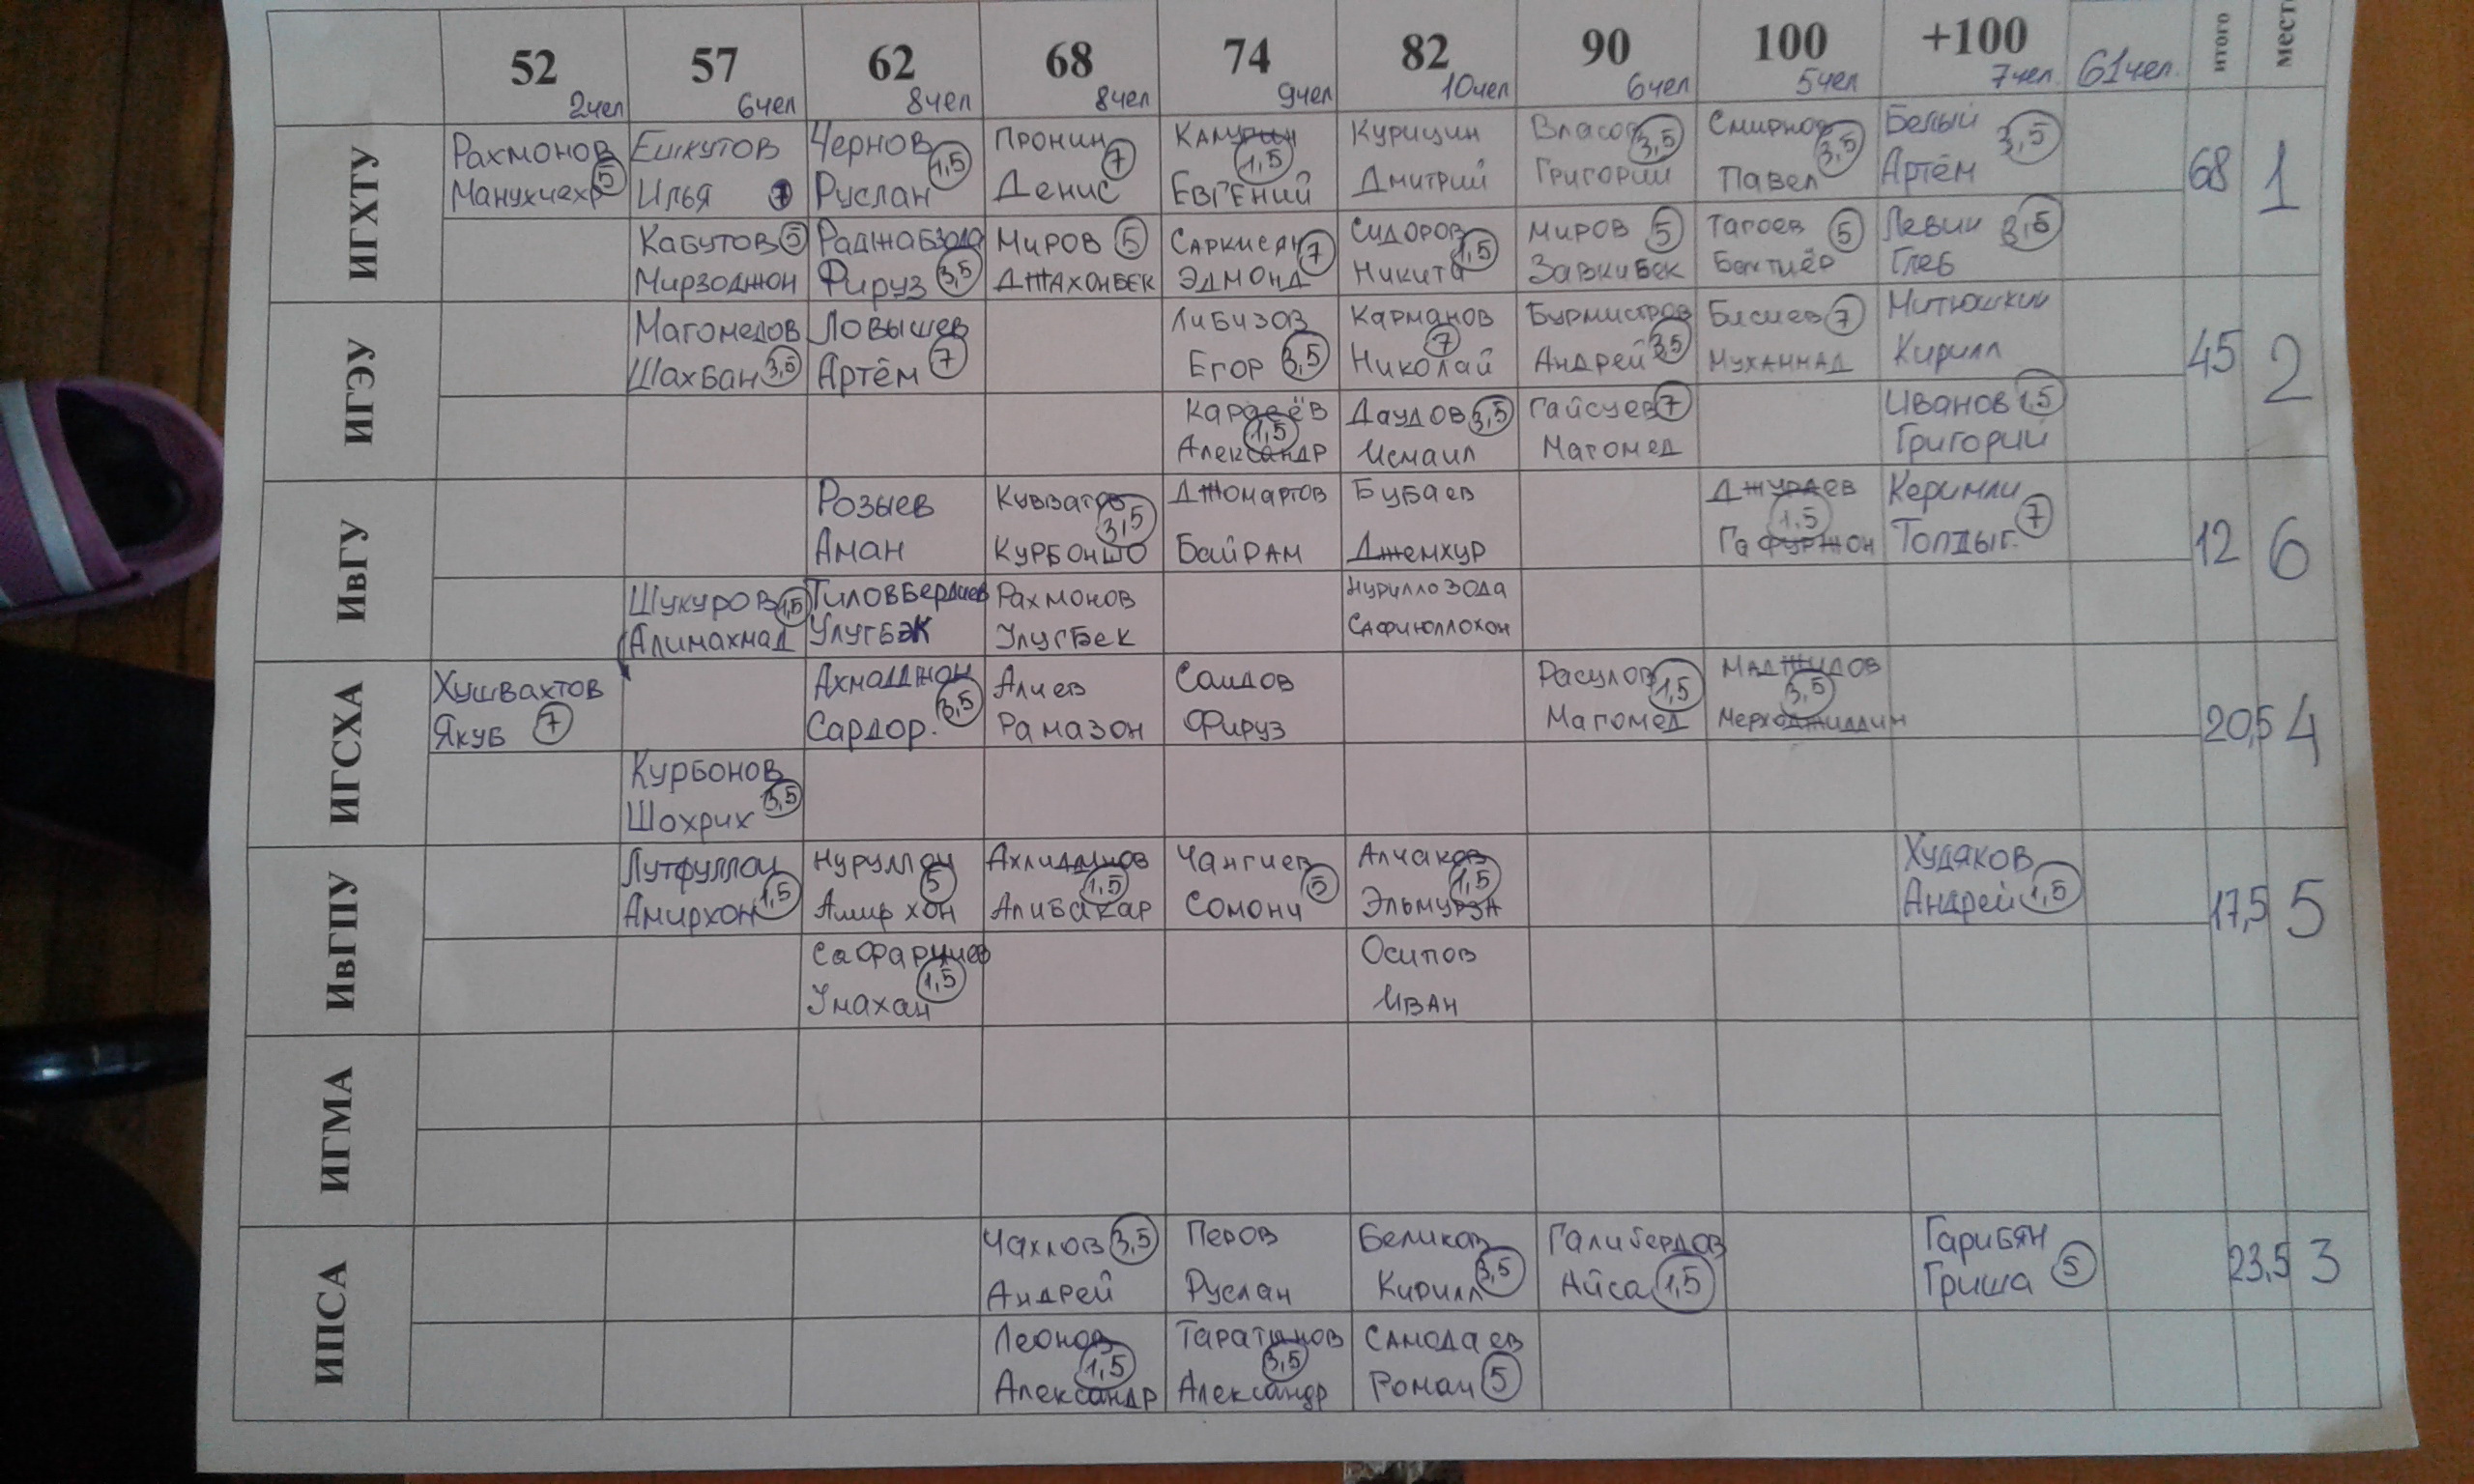 52 57 62 68 74 82 90 100 +100 итого мест
2чел 6чел 8чел 8чел 9чел 10чел 6чел 5чел 7чел. 61чел.
ИГХТУ
Рахмонов Ешкутов Чернов Пронин Камурин Курицин Власов Смирнов Белый
Манучехр 5 Илья 7 Руслан 1,5 Денис 7 Евгений 1,5 Дмитрий Григорий 3,5 Павел 3,5 Артём 3,5 68 1
Кабутов 5 Раджабзода Миров 5 Саркисян Сидоров Миров 5 Тагоев 5 Левин
Мирзоджон Фируз 3,5 Джахонбек Эдмонд 7 Никита 1,5 Завкибек Бахтиёр Глеб 3,5
ИГЭУ
Магомедов Ловышев Либизов Карманов Бурмистров Бясиев 7 Митюшкин
Шахбан 3,5 Артём 7 Егор 3,5 Николай 7 Андрей 3,5 Мухаммад Кирилл 45 2
Карасёв Даудов 3,5 Гайсуев 7 Иванов 1,5
Александр 1,5 Исмаил Магомед Григорий
ИвГУ
Розыев Кувватов Джомартов Бубаев Джураев Керимли
Аман Курбоншо 3,5 Байрам Джемхур Гафуржон 1,5 Толдыг. 7 12 6
Шукуров 1,5 Тиловбердиев Рахмонов Нурилло зода
Алимахмад Улугбэк Улугбек Сафиюллохон
ИГСХА
Хушвахтов Ахмаджон Алиев Саидов Расулов Маджидов
Якуб 7 Сардор. 3,5 Рамазон Фируз Магомед 1,5 Мерходжиддин 3,5 20,5 4
Курбонов
Шохрих 3,5
ИвГПУ
Лутфуллои Нуруллои Чангиев Алчаков Худяков
Амирхон 1,5 Амир хон 5 Алибакар 1,5 Сомони 5 Эльмурза 1,5 Андрей 1,5 17,5 5
Осипов
Умахан 1,5 Иван
ИГМА
ИПСА
Чахлов 3,5 Перов Беликов Галибердов Гарибян
Андрей Руслан Кирилл 3,5 Айса 1,5 Гриша 5 23,5 3
Леонов Таратынов Самодаев
Александр 1,5 Александр 3,5 Роман 5